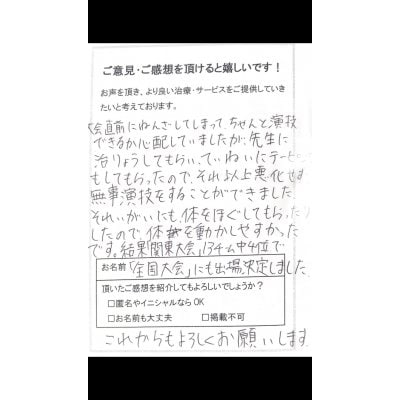 ご意見・ご感想を頂けると嬉しいです！
お声を頂き、より良い治療・サービスをご提供していき
たいと考えております。
大会直前にねんざしてしまって、ちゃんと演技
できるか心配していましたが、先生に
治りょうしてもらい、ていねいにテーピング
もしてもらったので、それ以上悪化せず
無事演技をすることができました
それいがいにも、体をほぐしてもらったり
したので、体を動かしやすかった
です。結果「関東大会」13チーム中4位で
お名前「全国大会」にも出場決定しました
頂いたご感想を紹介してもよろしいでしょうか？
□匿名やイニシャルならOK
□お名前も大丈夫 □掲載不可
これからもよろしくお願いします